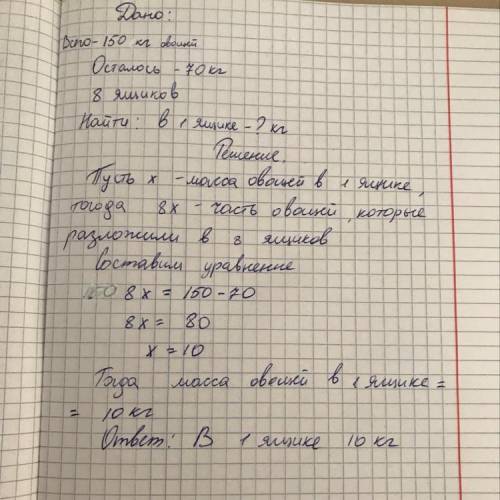 Дано:
Всго - 150 кг овощей
Осталось - 70 кг
8 ящиков
Найти: в 1 ящике - ? кг
Решение.
Пусть х - масса овощей в 1 ящике,
тогода 8х - часть овощей, которые
разложили в 8 ящиков
Составим уравнение
150 8х = 150 - 70
8х = 80
х = 10
Тогда масса овощей в 1 ящике =
= 10 кг
Ответ: В 1 ящике 10 кг